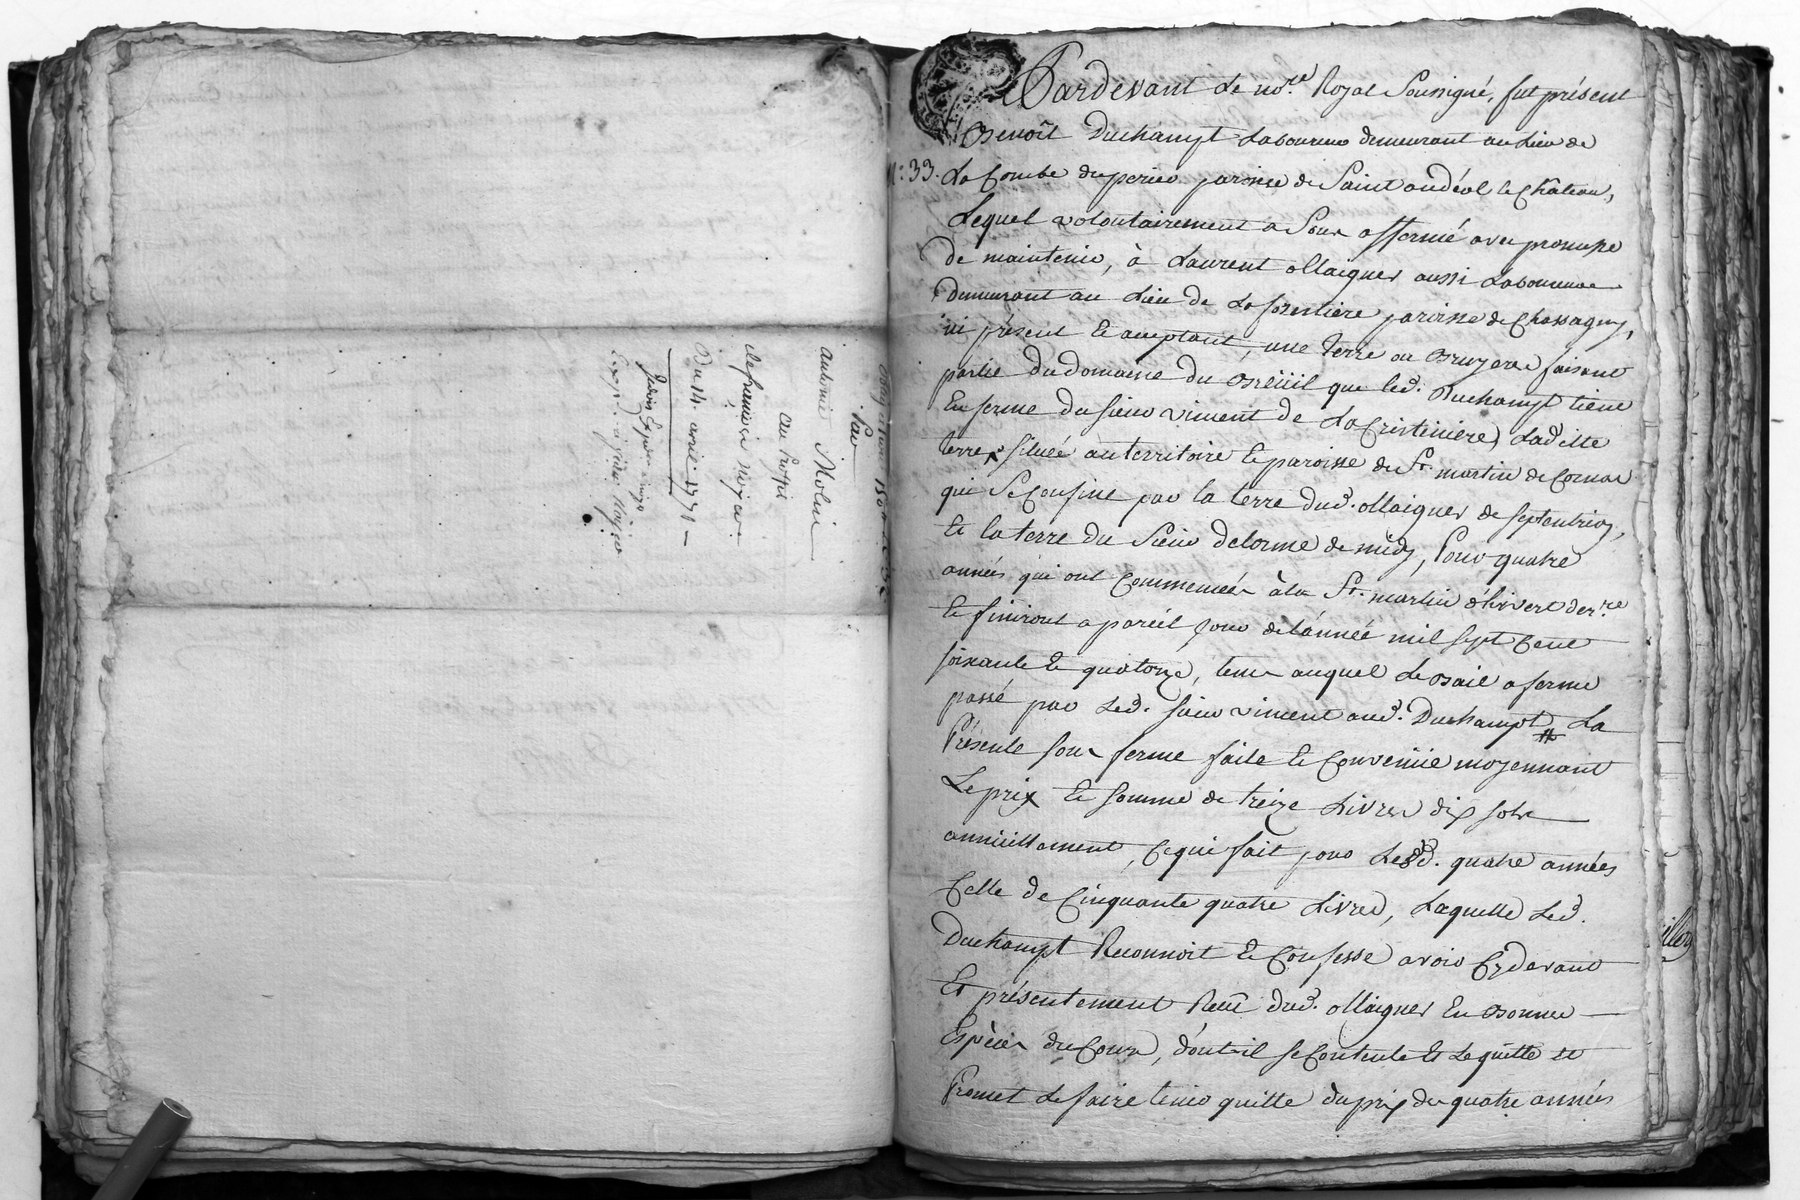 Obligation 150 ₶
Par
antoine Molin
au profit
Du 14. avril 1771
Pardevant Le no.re Royal Soussigné, fut présent
Benoît Duchampt Laboureur demeurant au Lieu de
N.° 33. La Combe du perier paroisse de Saint andéol le Château,
Lequel volontairement a Sous affermé avec promesse
De maintenir, à Laurent ollaignier aussi Laboureur
demeurant au Lieu de La forestière paroisse de Chassagny,
ici présent Et acceptant, une terre ou Bruyere faisant
partie Du Domaine Du Breüil que led. Duchampt tient
En ferme du sieur vincent de La Cristinière, Laditte
terre située au territoire Et paroisse de St. martin de Cornas
qui Se Confine par la terre dud. ollaignier de septentrion,
Et la terre du Sieur delorme de midy, Pour quatre
années qui ont Commencées à la St. martin d'hivert der.re
Et finiront a pareil jour de l'année mil sept Cent
soixante Et quatorze, tems auquel Le Bail a ferme
passé par Led. sieur vincent aud. Duchampt La
Présente sous ferme faite Et Convenüe moyennant
Le prix Et somme de treize Livres dix sols
annüellement, Ce qui fait pour Lesd. quatre années
Celle de Cinquante quatre Livres, Laquelle Led.
Duchampt Reconnoit Et Confesse avoir Cy devant
Et présentement Reçû dud. ollaignier En Bonnes
Espèces du Cours, dont il se Contente Et Le quitte et
Promet Le faire tenir quitte du prix des quatre années